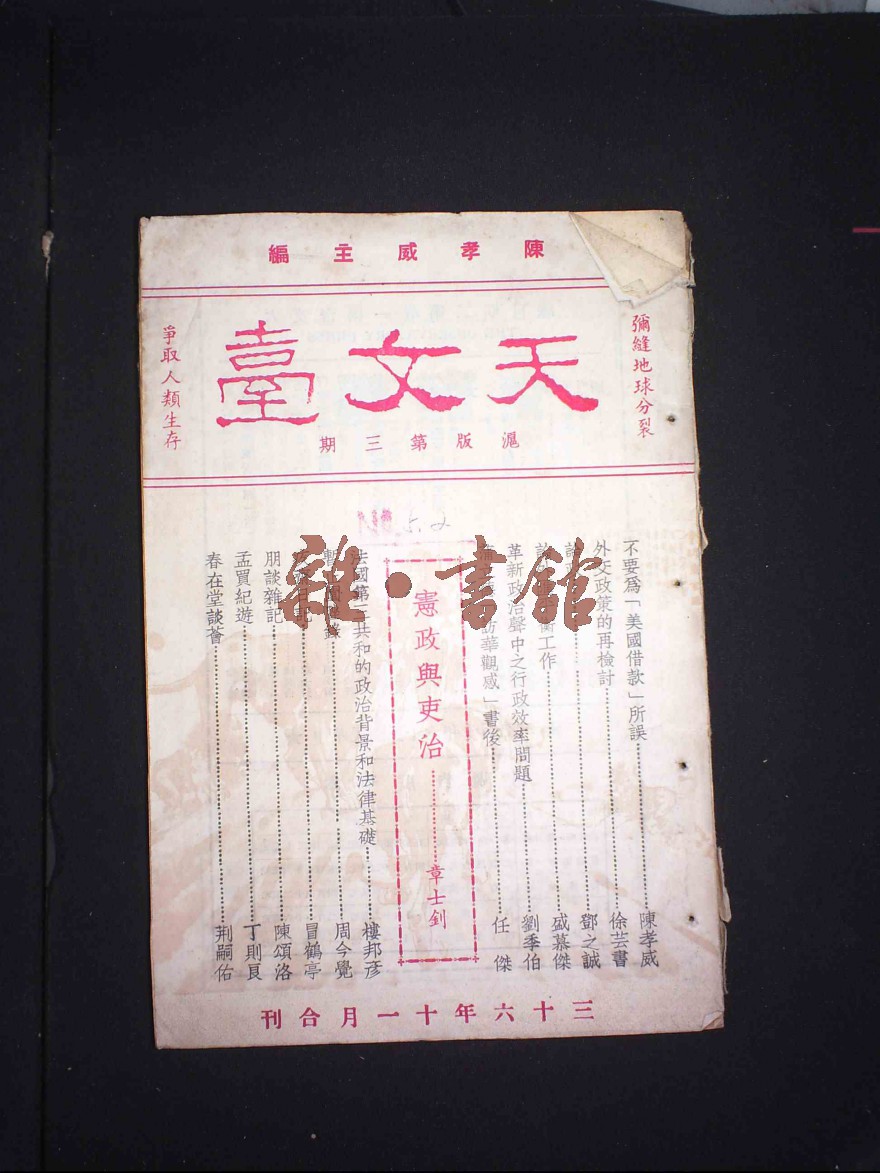 陳孝威主編
彌縫地球分裂
天文臺
爭取人類生存
滬版第三期
不要爲「美國借款」所誤 陳孝威
外交政策的再檢討 徐芸書
鄧之誠
工作 盛慕傑
革新政治聲中之行政效率問題 劉季伯
訪華觀感」書後 任傑
憲政與吏治 章士釗
法國第三共和的政治背景和法律基礎 樓邦彦
周今覺
日記 冒鶴亭
朋談雜記 陳頌洛
孟買紀遊 丁則良
春在堂談薈 荆嗣佑
三十六年十一月合刊
雜·書館